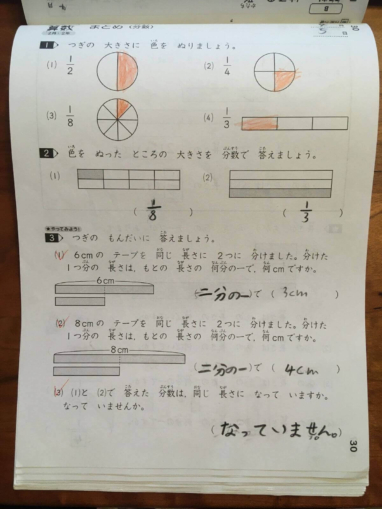 算数 まとめ(分数)
1 つぎの 大きさに 色を ぬりましょう。
(1) 1/2
(2) 1/4
(3) 1/8
(4) 1/3
2 色を ぬった ところの 大きさを 分数で 答えましょう。
(1) (2)
( 1/8 ) ( 1/3 )
やってみよう!
3 つぎの もんだいに 答えましょう。
(1) 6cmの テープを 同じ 長さに 2つに 分けました。分けた
1つ分の 長さは、もとの 長さの 何分の一で、何cmですか。
6cm
(二分の一)で ( 3cm )
(2) 8cmの テープを 同じ 長さに 2つに 分けました。分けた
1つ分の 長さは、もとの 長さの 何分の一で、何cmですか。
8cm
(二分の一)で ( 4cm )
(3) (1)と (2)で 答えた 分数は、同じ 長さに なって いますか。
なって いませんか。
(なっていません。)
30